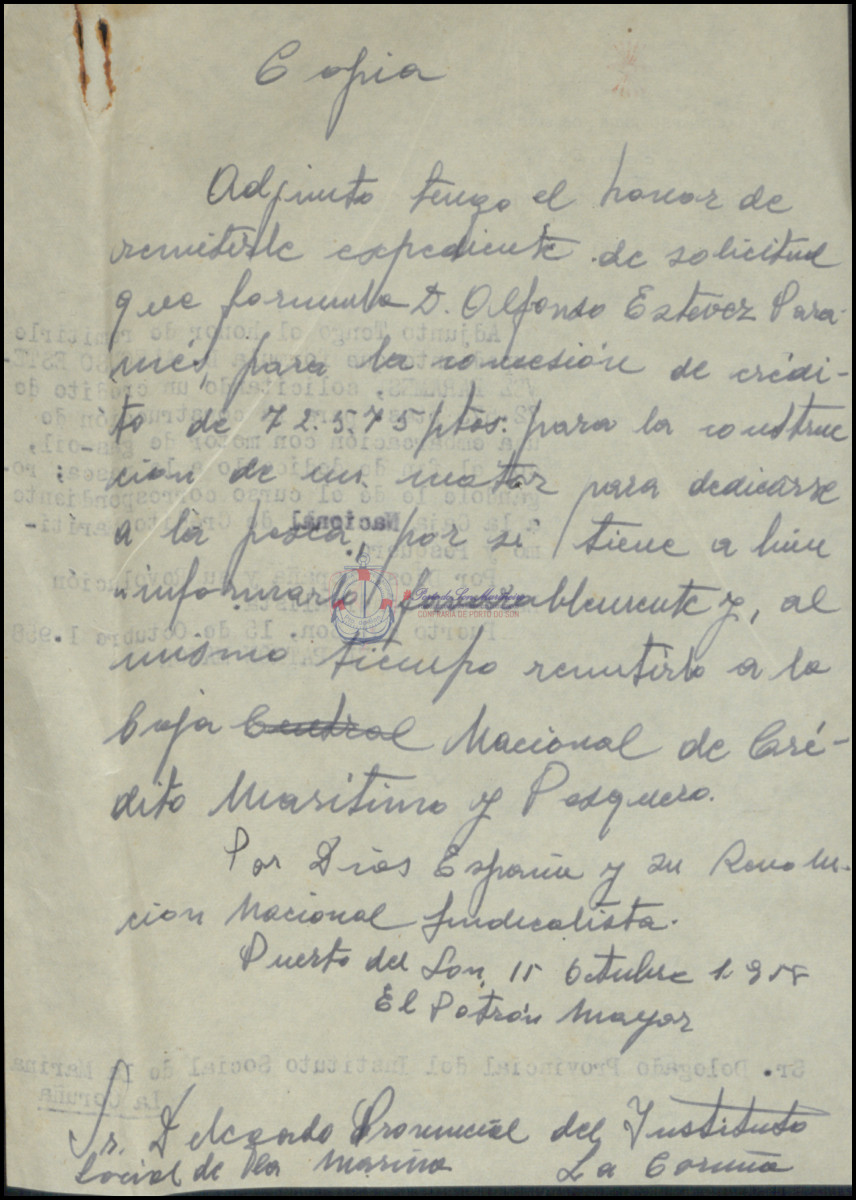 Copia
Adjunto tengo el honor de
remitirle expediente de solicitud
que formula D. Alfonso Estevez Para-
més, para la concesión de crédi-
to de 72.575 ptas. para la construc
cion de un motor para dedicarse
a la pesca, por si tiene a bien
informarlo favorablemente y, al
mismo tiempo remitirlo a la
Caja Central Nacional de Cré-
dito Maritimo y Pesquero.
Por Dios España y su Revolu-
cion Nacional Sindicalista.
Puerto del Son, 15 Octubre 1.958
El Patrón Mayor
Sr. Delegado Provincial del Instituto
Social de la Marina La Coruña
CONFRARÍA DE PORTO DO SON